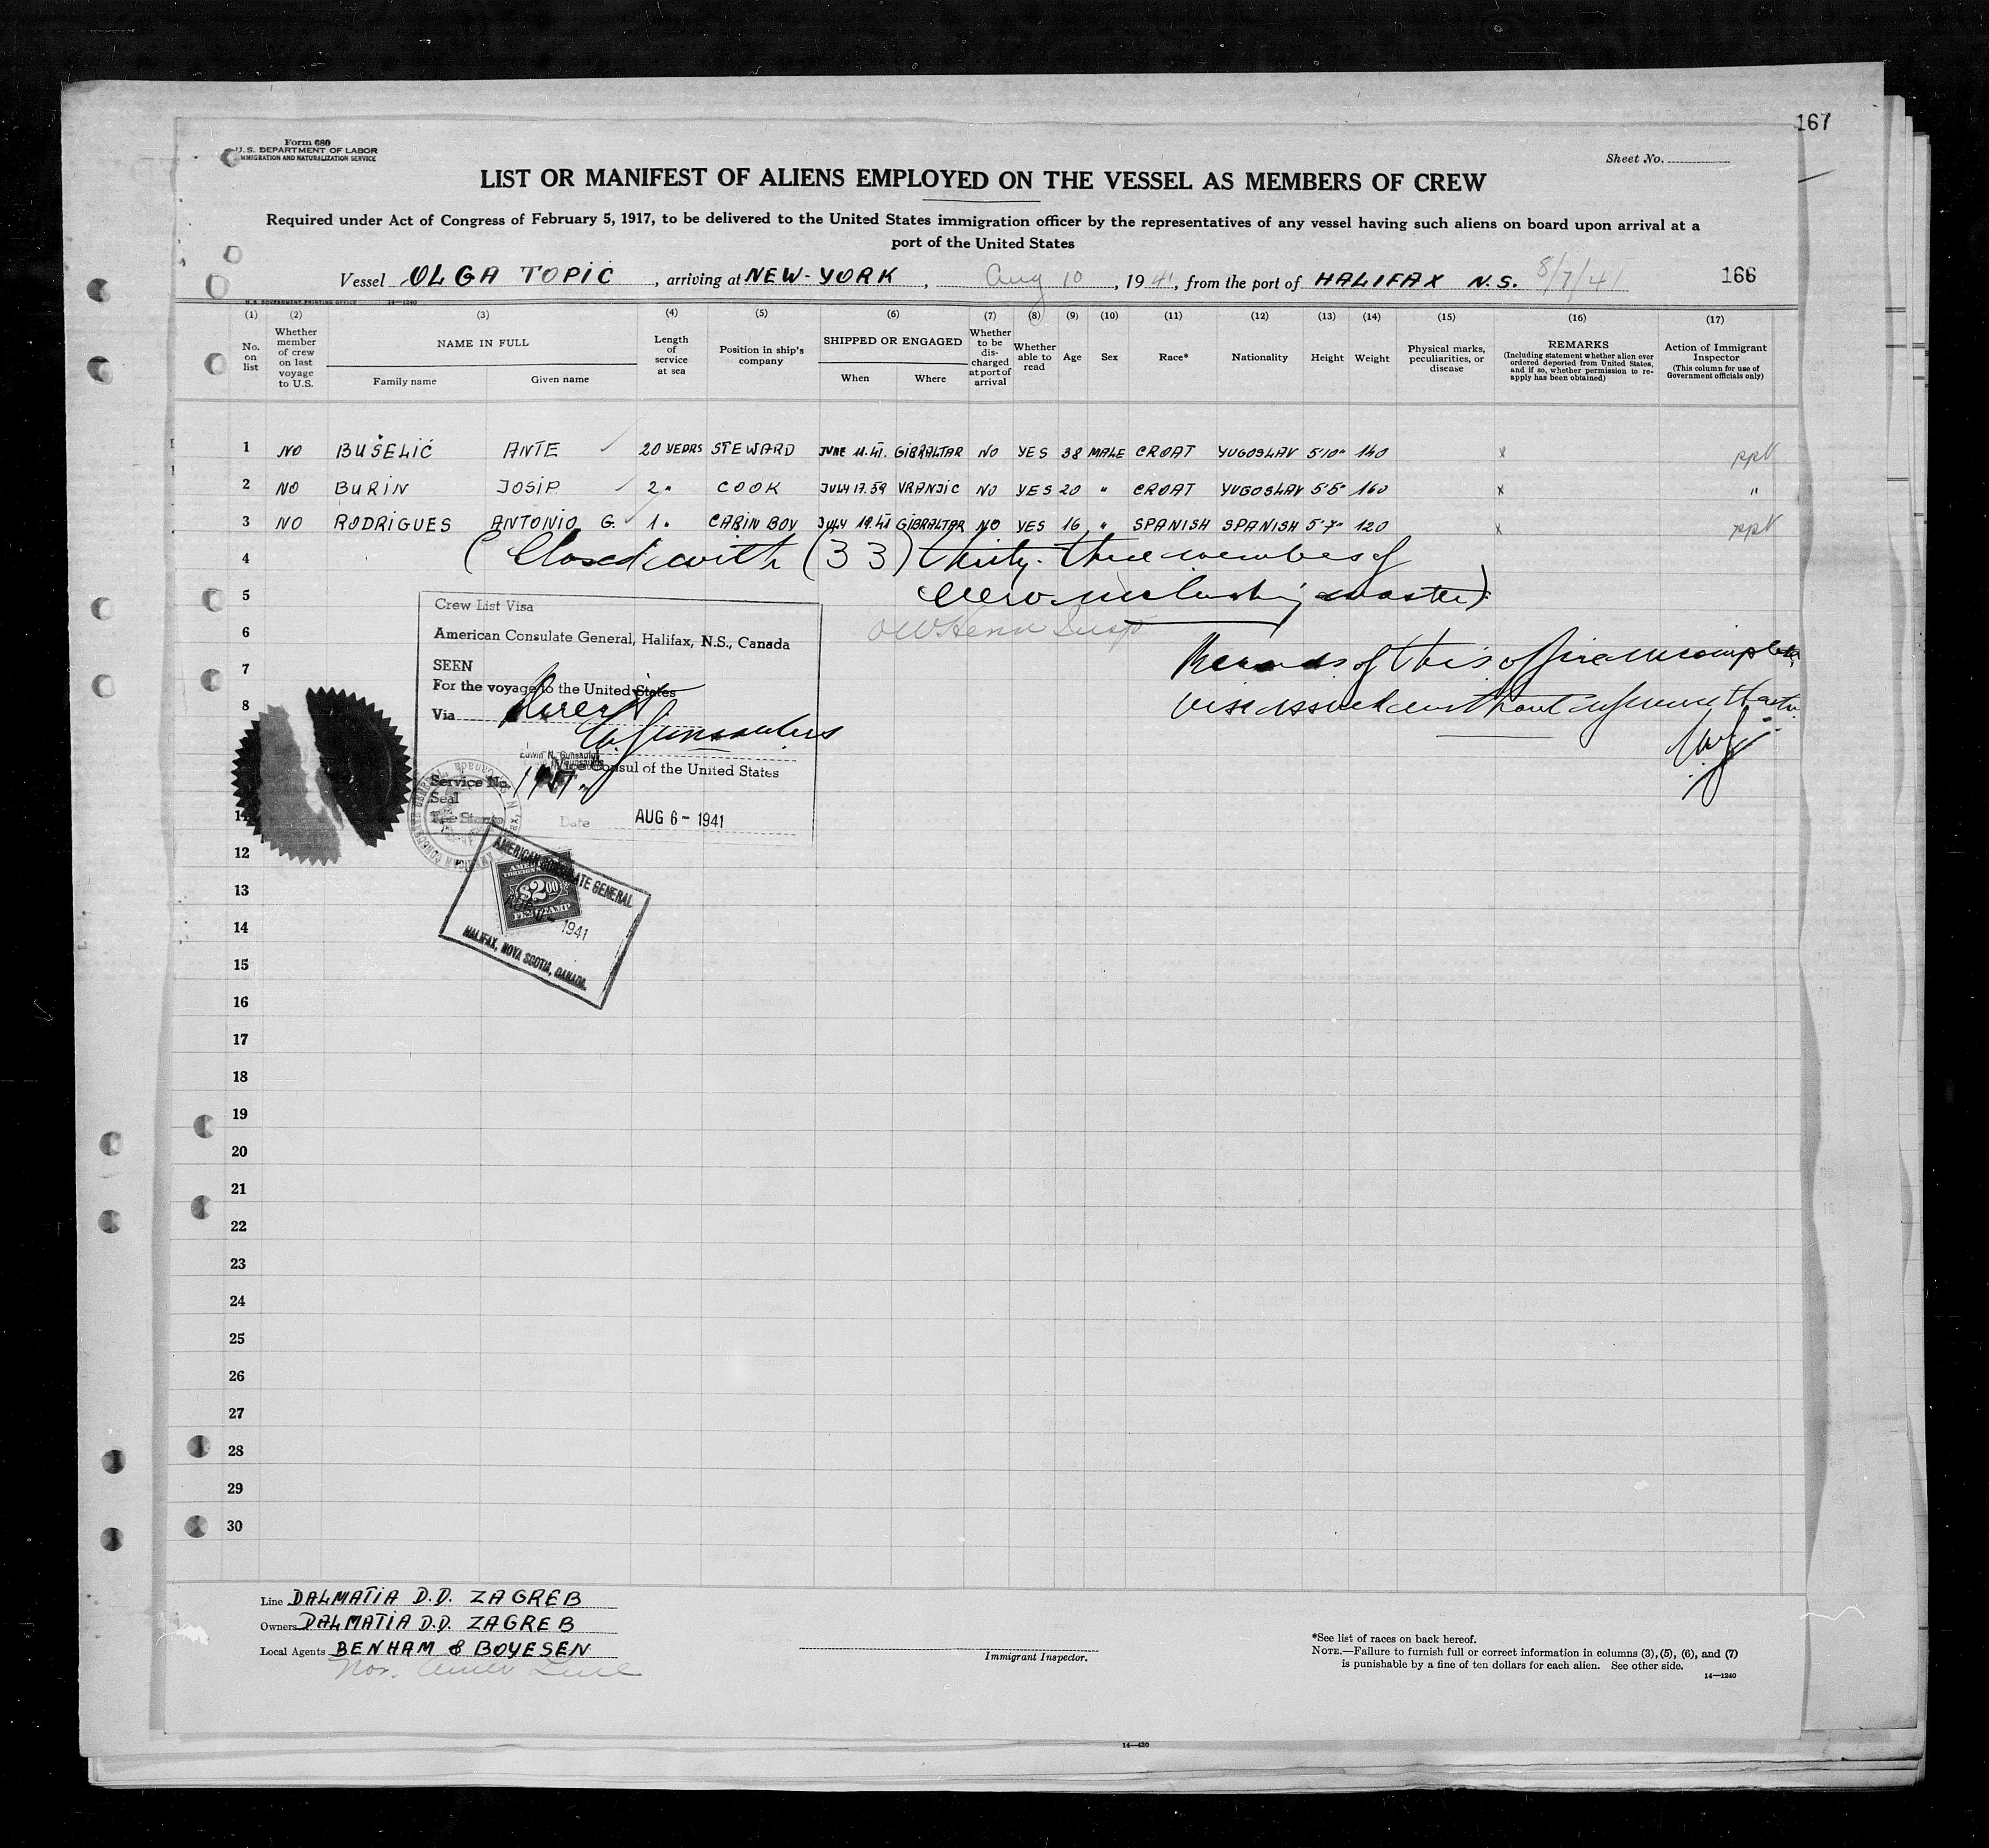 167
Form 680
U.S. DEPARTMENT OF LABOR
IMMIGRATION AND NATURALIZATION SERVICE
Sheet No.
LIST OR MANIFEST OF ALIENS EMPLOYED ON THE VESSEL AS MEMBERS OF CREW
Required under Act of Congress of February 5, 1917, to be delivered to the United States immigration officer by the representatives of any vessel having such aliens on board upon arrival at a
port of the United States
Vessel OLGA TOPIC, arriving at NEW-YORK, Aug 10, 1941, from the port of HALIFAX N.S. 8/7/41 166
U. S. GOVERNMENT PRINTING OFFICE 14—1240
(1) (2) (3) (4) (5) (6) (7) (8) (9) (10) (11) (12) (13) (14) (15) (16) (17)
No. on list
Whether member of crew on last voyage to U.S.
NAME IN FULL
Family name Given name
Length of service at sea
Position in ship's company
SHIPPED OR ENGAGED
When Where
Whether to be discharged at port of arrival
Whether able to read
Age
Sex
Race*
Nationality
Height
Weight
Physical marks, peculiarities, or disease
REMARKS
(Including statement whether alien ever ordered deported from United States, and if so, whether permission to reapply has been obtained)
Action of Immigrant Inspector
(This column for use of Government officials only)
1 NO BUŠELIĆ ANTE 20 YEARS STEWARD JUNE 11.41. GIBRALTAR NO YES 38 MALE CROAT YUGOSLAV 5'10" 140 x ppV
2 NO BURIN JOSIP 2 " COOK JULY 17.39 VRANJIC NO YES 20 " CROAT YUGOSLAV 5'5" 160 x "
3 NO RODRIGUES ANTONIO G. 1 " CABIN BOY JULY 19.41 GIBRALTAR NO YES 16 " SPANISH SPANISH 5'7" 120 x ppV
4 (Closed with (33) thirty-three members of
5 crew including master)
6
7
8
Records of this office incomplete
visa issued without reference thereto.
Crew List Visa
American Consulate General, Halifax, N.S., Canada
SEEN
For the voyage to the United States
Via Direct
Edwin N. Gunsaulus
Vice Consul of the United States
Service No.
Seal
Fee Stamp
Date AUG 6 - 1941
AMERICAN CONSULATE GENERAL
$2.00
FEE STAMP
1941
HALIFAX, NOVA SCOTIA, CANADA.
11
12
13
14
15
16
17
18
19
20
21
22
23
24
25
26
27
28
29
30
Line DALMATIA D.D. ZAGREB
Owners DALMATIA D.D. ZAGREB
Local Agents BENHAM & BOYESEN
Nor. Amer Line
Immigrant Inspector.
*See list of races on back hereof.
NOTE.—Failure to furnish full or correct information in columns (3), (5), (6), and (7)
is punishable by a fine of ten dollars for each alien. See other side.
14—1240
14—430